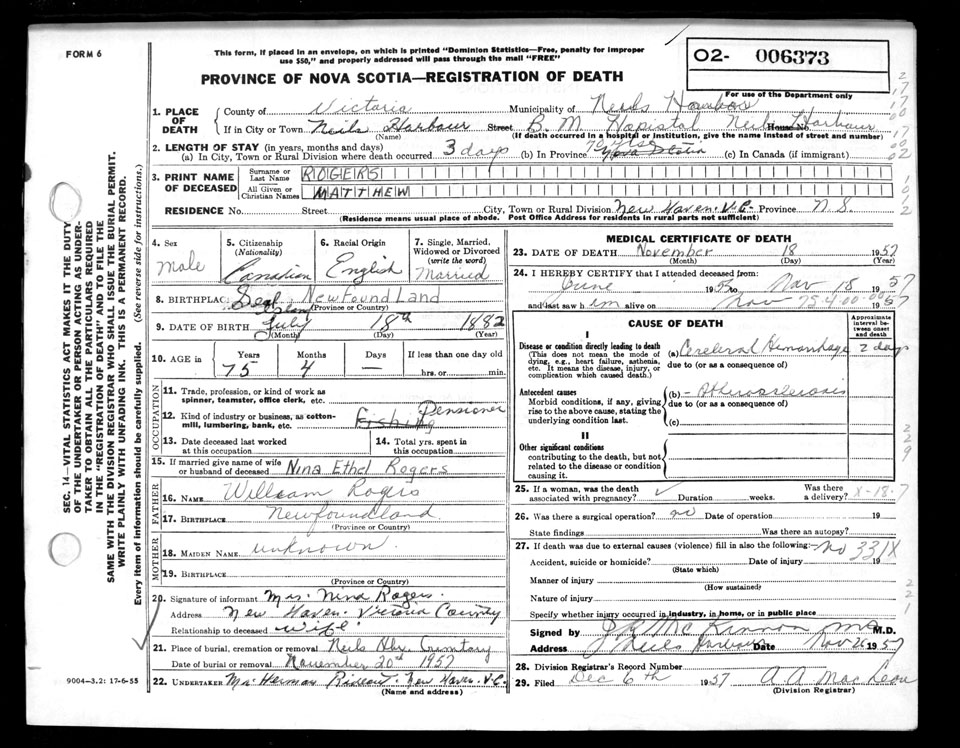 FORM 6
This form, if placed in an envelope, on which is printed "Dominion Statistics—Free, penalty for improper
use $50," and properly addressed will pass through the mail "FREE"
PROVINCE OF NOVA SCOTIA—REGISTRATION OF DEATH
02- 006373
For use of the Department only
SEC. 14—VITAL STATISTICS ACT MAKES IT THE DUTY
OF THE UNDERTAKER OR PERSON ACTING AS UNDER-
TAKER TO OBTAIN ALL THE PARTICULARS REQUIRED
IN THE "REGISTRATION OF DEATH" AND TO FILE THE
SAME WITH THE DIVISION REGISTRAR WHO SHALL ISSUE THE BURIAL PERMIT.
WRITE PLAINLY WITH UNFADING INK. THIS IS A PERMANENT RECORD.
Every item of information should be carefully supplied. (See reverse side for instructions.)
1. PLACE OF DEATH
County of Victoria Municipality of Neils Harbour
If in City or Town Neils Harbour Street B. M. Hospital Neils Harbour House No.
(Name) (If death occurred in a hospital or institution, give the name instead of street and number)
2. LENGTH OF STAY (in years, months and days)
(a) In City, Town or Rural Division where death occurred 3 days (b) In Province Nova Scotia (c) In Canada (if immigrant)
3. PRINT NAME OF DECEASED
Surname or Last Name ROGERS
All Given or Christian Names MATTHEW
RESIDENCE No. Street City, Town or Rural Division New Haven. V.C. Province N.S.
(Residence means usual place of abode. Post Office Address for residents in rural parts not sufficient)
4. Sex
male
5. Citizenship (Nationality)
Canadian
6. Racial Origin
English
7. Single, Married, Widowed or Divorced (write the word)
Married
8. BIRTHPLACE Seal Island Newfoundland
(Province or Country)
9. DATE OF BIRTH July 18th 1882
(Month) (Day) (Year)
10. AGE in Years Months Days If less than one day old
75 4 — hrs. or min.
OCCUPATION
11. Trade, profession, or kind of work as
spinner, teamster, office clerk, etc.
12. Kind of industry or business, as cotton-
mill, lumbering, bank, etc. Fishing Pensioner
13. Date deceased last worked
at this occupation
14. Total yrs. spent in
this occupation
15. If married give name of wife
or husband of deceased Nina Ethel Rogers
FATHER
16. NAME William Rogers
17. BIRTHPLACE Newfoundland
(Province or Country)
MOTHER
18. MAIDEN NAME unknown
19. BIRTHPLACE
(Province or Country)
20. Signature of informant Mrs. Nina Rogers.
Address New Haven. Victoria County
Relationship to deceased wife
21. Place of burial, cremation or removal Neils Hbr. Cemetary
Date of burial or removal November 20th 1957
22. UNDERTAKER Mr Herman Rideout. New Haven. V.C.
(Name and address)
9004-3.2: 17-6-55
MEDICAL CERTIFICATE OF DEATH
23. DATE OF DEATH November 18 1957
(Month) (Day) (Year)
24. I HEREBY CERTIFY that I attended deceased from:
June 1957 to Nov 18 1957
and last saw him alive on Nov 1957
CAUSE OF DEATH
Approximate interval between onset and death
I
Disease or condition directly leading to death
(This does not mean the mode of
dying, e.g., heart failure, asthenia,
etc. It means the disease, injury, or
complication which caused death.)
(a) Cerebral Hemorrhage 2 days
due to (or as a consequence of)
Antecedent causes
Morbid conditions, if any, giving
rise to the above cause, stating the
underlying condition last.
(b) Atherosclerosis
due to (or as a consequence of)
(c)
II
Other significant conditions
contributing to the death, but not
related to the disease or condition
causing it.
25. If a woman, was the death
associated with pregnancy? Duration weeks. Was there
a delivery? X-18-7
26. Was there a surgical operation? no Date of operation 19
State findings Was there an autopsy?
27. If death was due to external causes (violence) fill in also the following:— No 331X
Accident, suicide or homicide? Date of injury 19
(State which)
Manner of injury
(How sustained)
Nature of injury
Specify whether injury occurred in industry, in home, or in public place
Signed by MacKinnon M.D.
Address Neils Harbour Date Nov 26 1957
28. Division Registrar's Record Number
29. Filed Dec 6th 1957 A A MacLean
(Division Registrar)